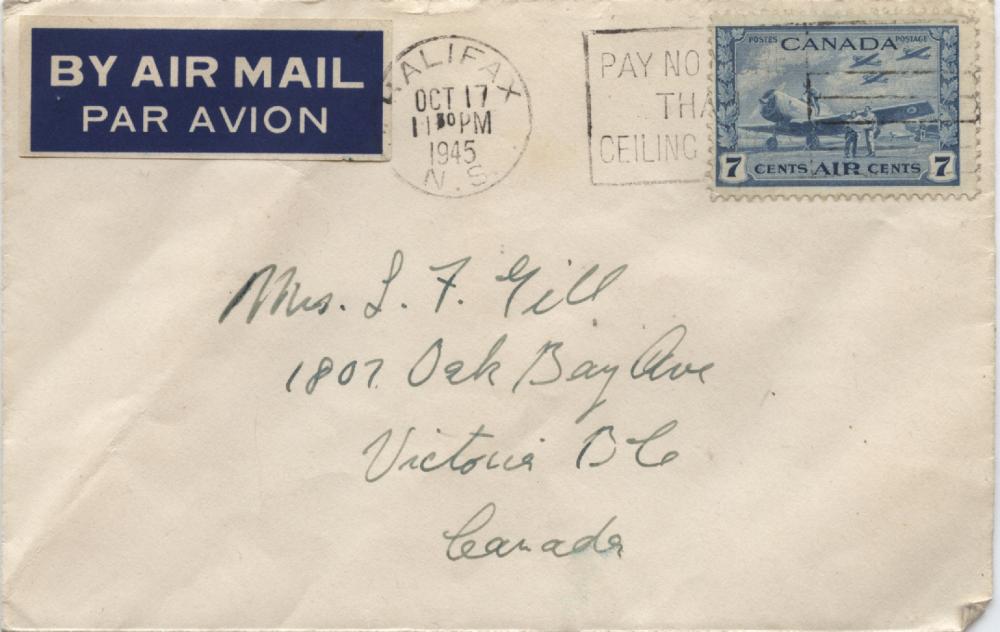 BY AIR MAIL
PAR AVION
HALIFAX
OCT 17
11 30 PM
1945
N. S.
PAY NO
THA
CEILING
POSTES POSTAGE
CANADA
7 CENTS AIR CENTS 7
Mrs. L. F. Gill
1807 Oak Bay Ave
Victoria B C
Canada